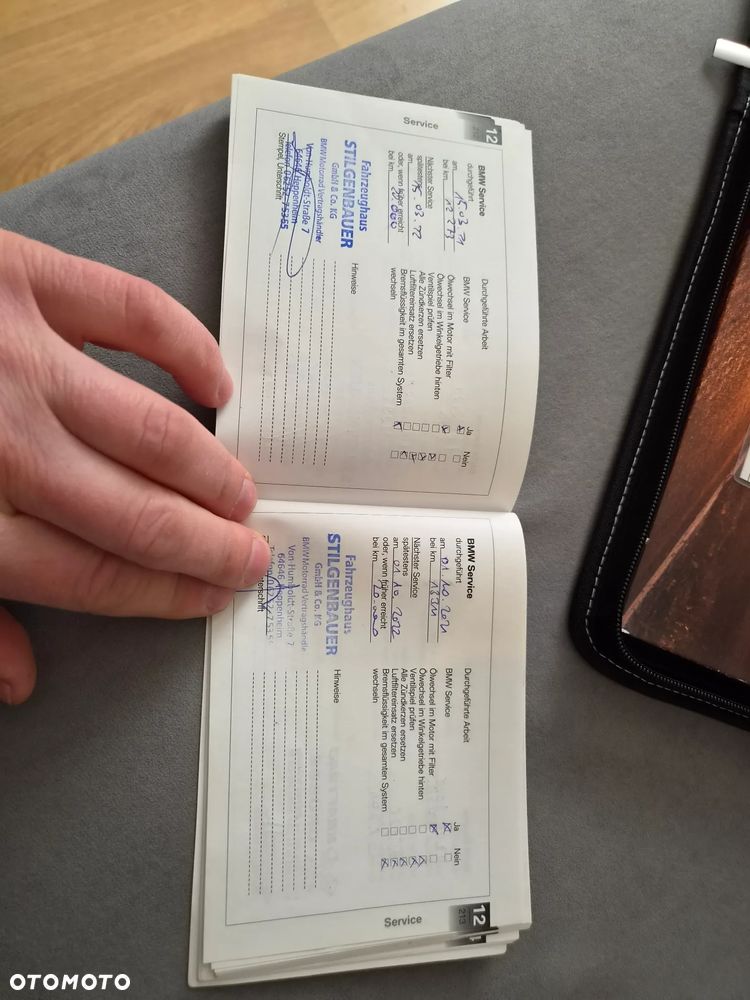 12
Service
BMW Service
durchgeführt
am 15.03.21
bei km
Nächster Service
spätestens
am 15.03.22
oder, wenn früher erreicht
bei km 20.000
Fahrzeughaus
STILGENBAUER
GmbH & Co. KG
BMW Motorrad Vertragshändler
Von Humboldt-Straße 7
64646 Heppenheim
Stempel, Unterschrift
Durchgeführte Arbeit
BMW Service
Ölwechsel im Motor mit Filter
Ölwechsel im Winkelgetriebe hinten
Ventilspiel prüfen
Alle Zündkerzen ersetzen
Luftfiltereinsatz ersetzen
Bremsflüssigkeit im gesamten System
wechseln
Ja Nein
Hinweise
BMW Service
durchgeführt
am 01.10.2021
bei km
Nächster Service
spätestens
am 01.10.2022
oder, wenn früher erreicht
bei km 20.000
Fahrzeughaus
STILGENBAUER
GmbH & Co. KG
BMW Motorrad Vertragshändle
Von Humboldt-Straße 7
64646 Heppenheim
Durchgeführte Arbeit
BMW Service
Ölwechsel im Motor mit Filter
Ölwechsel im Winkelgetriebe hinten
Ventilspiel prüfen
Alle Zündkerzen ersetzen
Luftfiltereinsatz ersetzen
Bremsflüssigkeit im gesamten System
wechseln
Ja Nein
Hinweise
12
213
Service
OTOMOTO